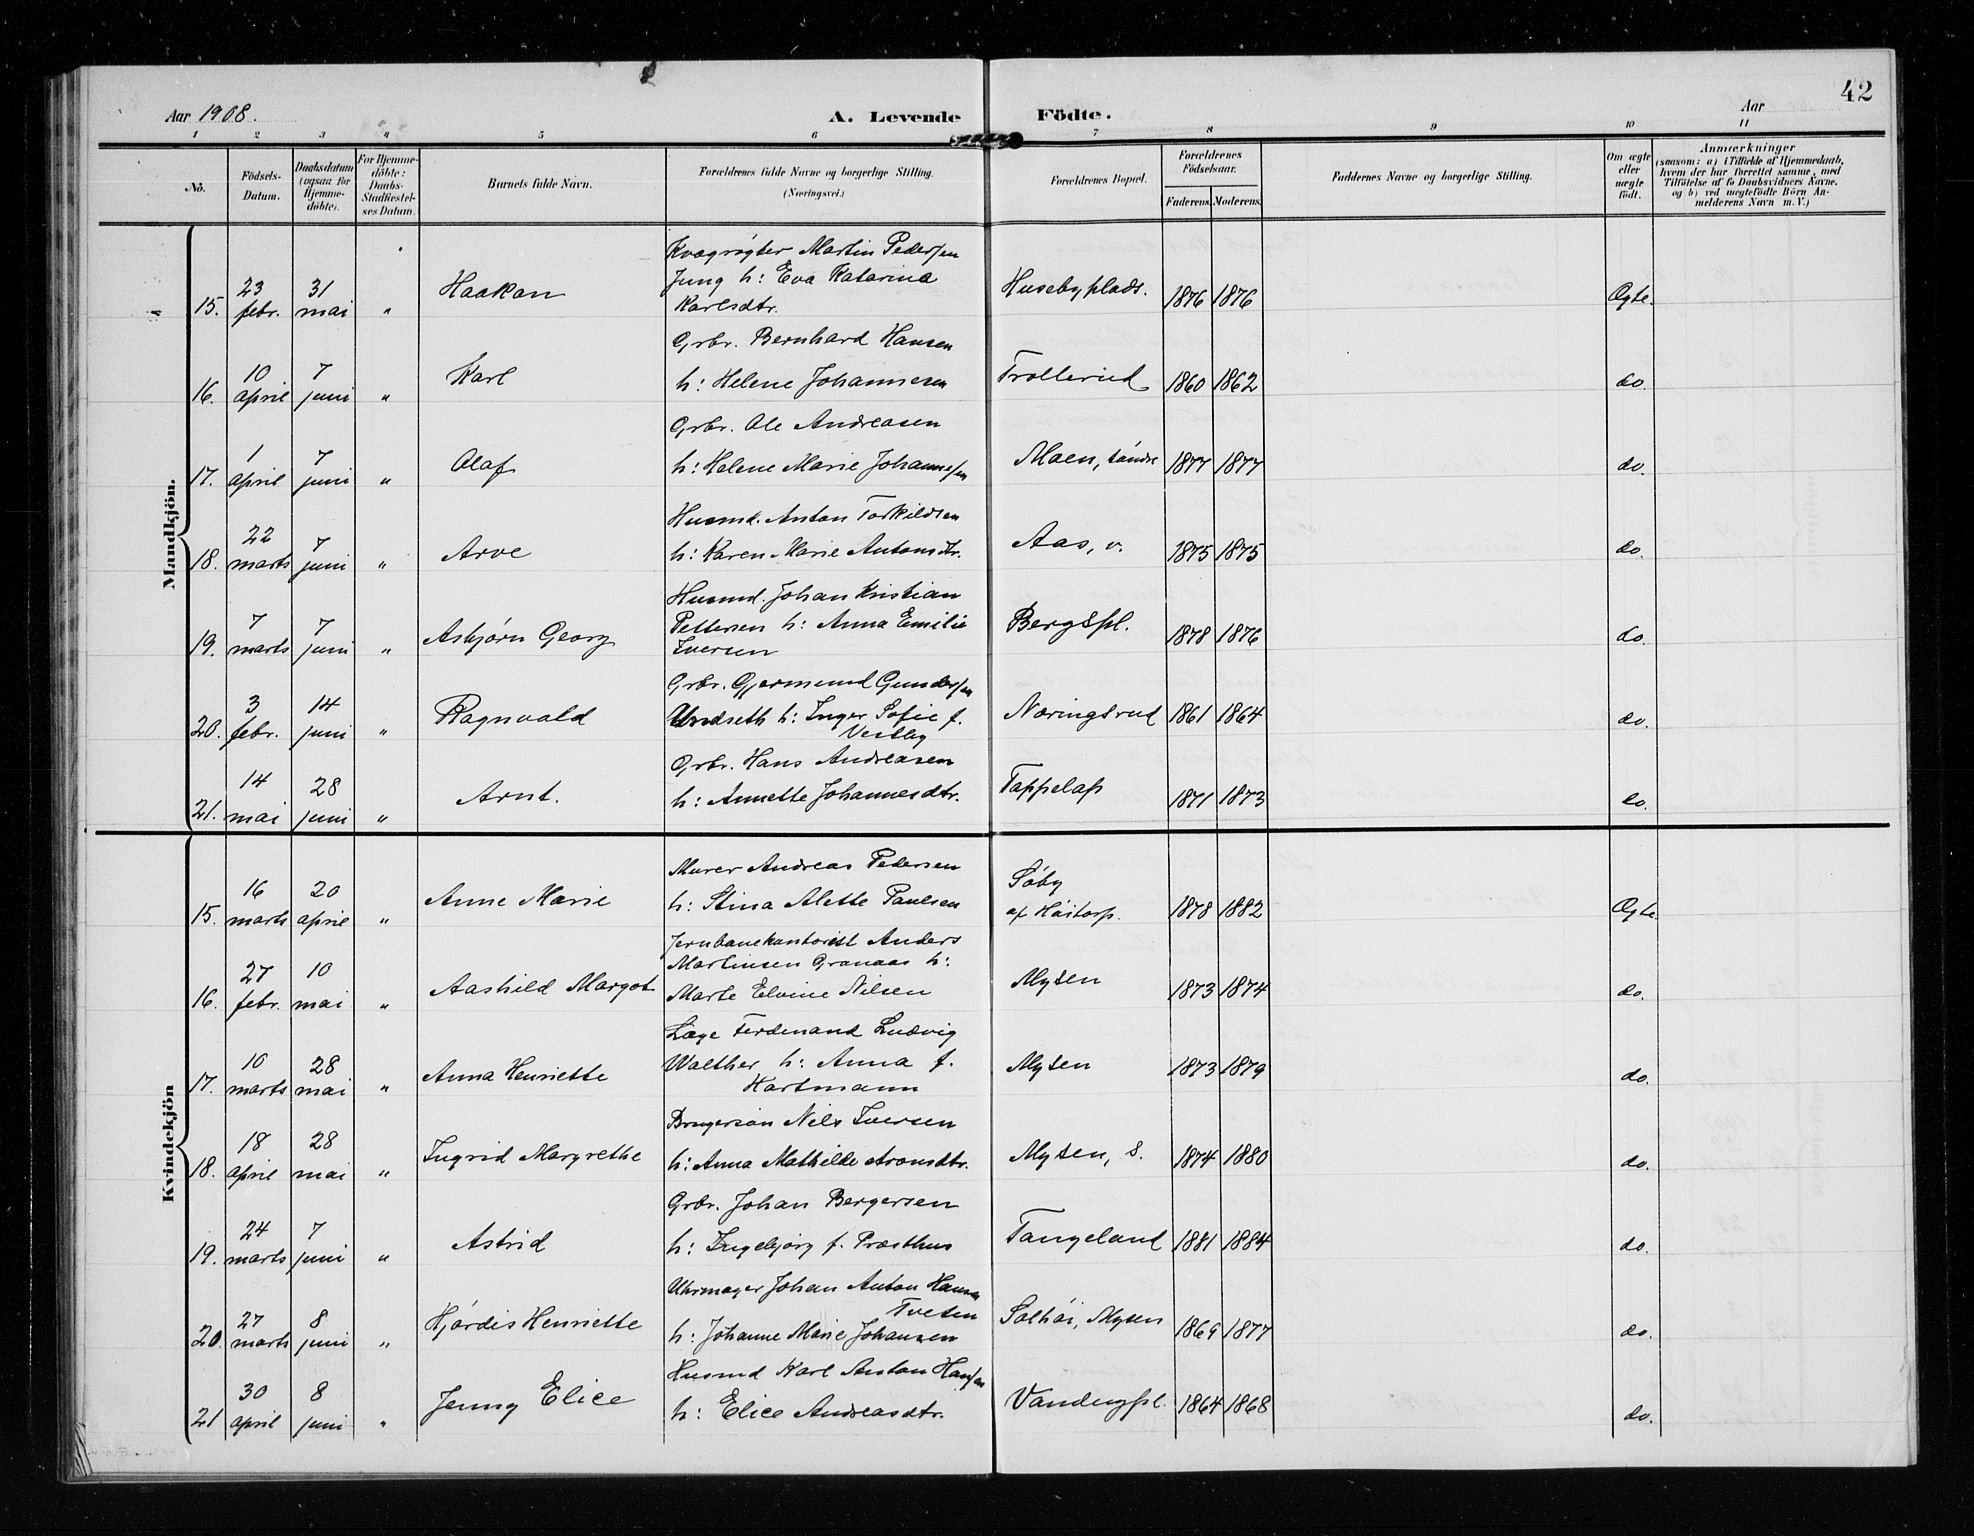 42
Aar 1908.
A. Levende Födte.
Aar
1 2 3 4 5 6 7 8 9 10 11
No.
Födsels-Datum.
Daabsdatum (ogsaa for Hjemme-döbte).
For Hjemme-döbte: Daabs-Stadfæstel-ses Datum.
Barnets fulde Navn.
Forældrenes fulde Navne og borgerlige Stilling. (Næringsvei.)
Forældrenes Bopæl.
Forældrenes Födselsaar.
Faderens. Moderens.
Faddernes Navne og borgerlige Stilling.
Om ægte eller uægte født.
Anmærkninger
(saasom: a) i Tilfælde af Hjemmedaab,
hvem der har forrettet samme, med
Tilföielse af to Daabsvidners Navne.
og b) ved uægtefödte Börn An-
melderens Navn m. V.)
Mandkjön.
Kvægrøgter Martin Pedersen
Jung h: Eva Katarina
Karlsdtr.
15. 23 febr. 31 mai " Haakon Husebyplads. 1876 1876 Ægte.
Grbr. Bernhard Hansen
16. 10 april 7 juni " Karl h: Helene Johannesen Trollerud 1860 1862 do.
Grbr. Ole Andreasen
17. 1 april 7 juni " Olaf h: Helene Marie Johannesen Moen, søndre 1877 1877 do.
Husmd. Anton Torkildsen
18. 22 marts 7 juni " Arve h: Karen Marie Antonsdtr. Aas, v. 1875 1875 do.
Husmd. Johan Kristian
Pettersen h: Anna Emilie
Iversen
19. 7 marts 7 juni " Asbjørn Georg Bergspl. 1878 1876 do.
Grbr. Gjermund Gundersen
Undseth h: Inger Sofie f.
Vestby
20. 3 febr. 14 juni " Ragnvald Næringsrud 1861 1864 do.
Grbr. Hans Andreasen
21. 14 mai 28 juni " Arnt. h: Annette Johannesdtr. Tappelap 1871 1873 do.
Kvindekjön
Murer Andreas Pedersen
15. 16 marts 20 april " Anne Marie h: Stina Alette Paulsen Søby af Høitorp. 1878 1882 Ægte
Jernbanekontorist Anders
Martinsen Granaas h:
Marte Elvine Nilsen
16. 27 febr. 10 mai " Aashild Margot Mysen 1873 1874 do.
Læge Ferdinand Ludvig
Walther h: Anna f.
Hartmann
17. 10 marts 28 mai " Anna Henriette Mysen 1873 1879 do.
Brugersøn Nils Iversen
18. 18 april 28 mai " Ingrid Margrethe h: Anna Mathilde Aronsdtr. Mysen, s. 1874 1880 do.
Grbr. Johan Bergersen
19. 24 marts 7 juni " Astrid h: Ingebjørg f. Præsthus Tangeland 1881 1884 do.
Uhrmager Johan Anton Hansen
Tveten
20. 27 marts 8 juni " Hjørdis Henriette h: Johanne Marie Johansen Solhøi, Mysen 1869 1877 do.
Husmd Karl Anton Hansen
21 30 april 8 juni " Jenny Elice h: Elice Andreasdtr. Vandugpl. 1864 1868 do.